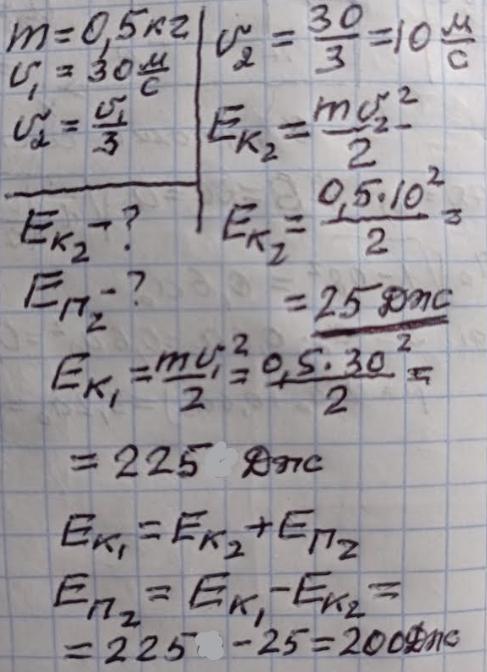 m = 0,5 кг
v₁ = 30 м/с
v₂ = v₁/3
E_К₂ - ?
E_П₂ - ?
v₂ = 30/3 = 10 м/с
E_К₂ = mv₂²/2
E_К₂ = 0,5·10²/2 =
= 25 Дж
E_К₁ = mv₁²/2 = 0,5·30²/2 =
= 225 Дж
E_К₁ = E_К₂ + E_П₂
E_П₂ = E_К₁ - E_К₂ =
= 225 - 25 = 200 Дж